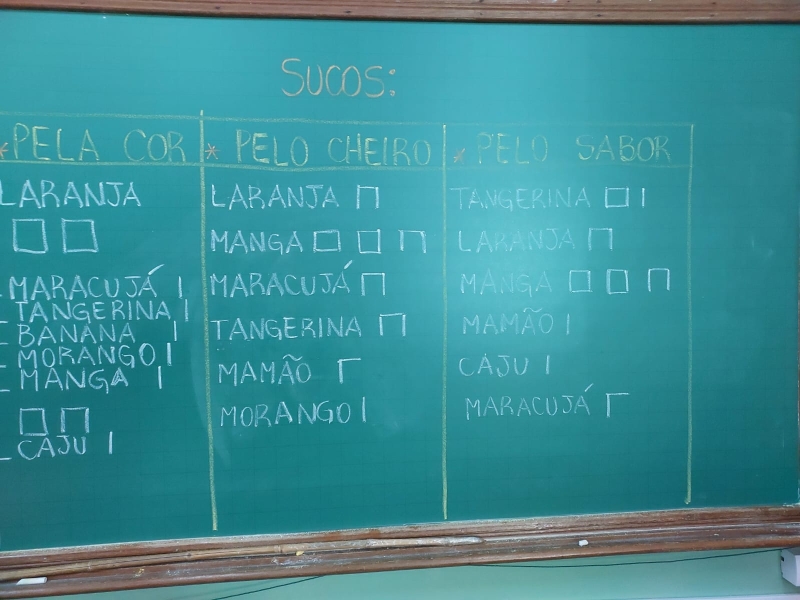 SUCOS:
* PELA COR
LARANJA
MARACUJÁ
TANGERINA
BANANA
MORANGO
MANGA
CAJU
* PELO CHEIRO
LARANJA
MANGA
MARACUJÁ
TANGERINA
MAMÃO
MORANGO
* PELO SABOR
TANGERINA
LARANJA
MANGA
MAMÃO
CAJU
MARACUJÁ